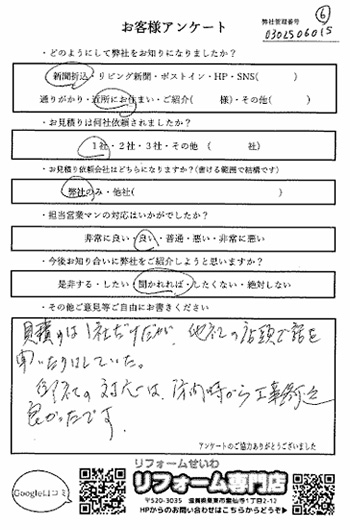 ⑥
お客様アンケート
弊社管理番号
0302506015
・どのようにして弊社をお知りになりましたか?
新聞折込・リビング新聞・ポストイン・HP・SNS( )
通りがかり・近所にお住まい・ご紹介( 様)・その他( )
・お見積りは何社依頼されましたか?
1社・2社・3社・その他 ( 社)
・お見積り依頼会社はどちらになりますか?(書ける範囲で結構です)
弊社のみ・他社( )
・担当営業マンの対応はいかがでしたか?
非常に良い・良い・普通・悪い・非常に悪い
・今後お知り合いに弊社をご紹介しようと思いますか?
是非する・したい・聞かれれば・したくない・絶対しない
・その他ご意見等ご自由にお書きください
見積りは1社だけだが、他社の店頭で話を
聞いたりはしていた。
の対応は、訪問時から工事終了迄
良かったです。
アンケートのご協力ありがとうございました
Google口コミ
リフォームせいわ
リフォーム専門店
〒520-3035 滋賀県栗東市霊仙寺1丁目2-12
HPからのお問い合わせはこちらからどうぞ